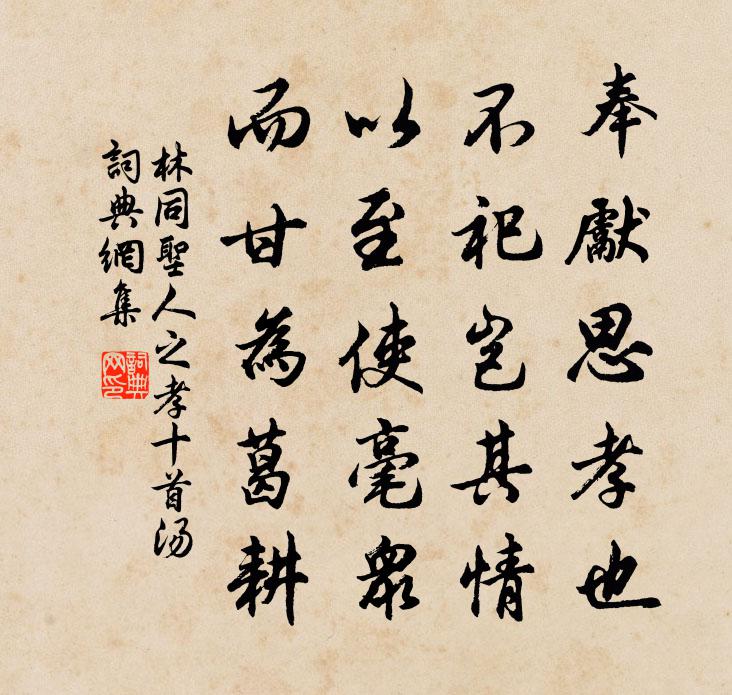 奉獻思孝也
不祀豈其情
以至使毫眾
而甘為葛耕
林同聖人之孝十首湯
詞典網集
詞典网印